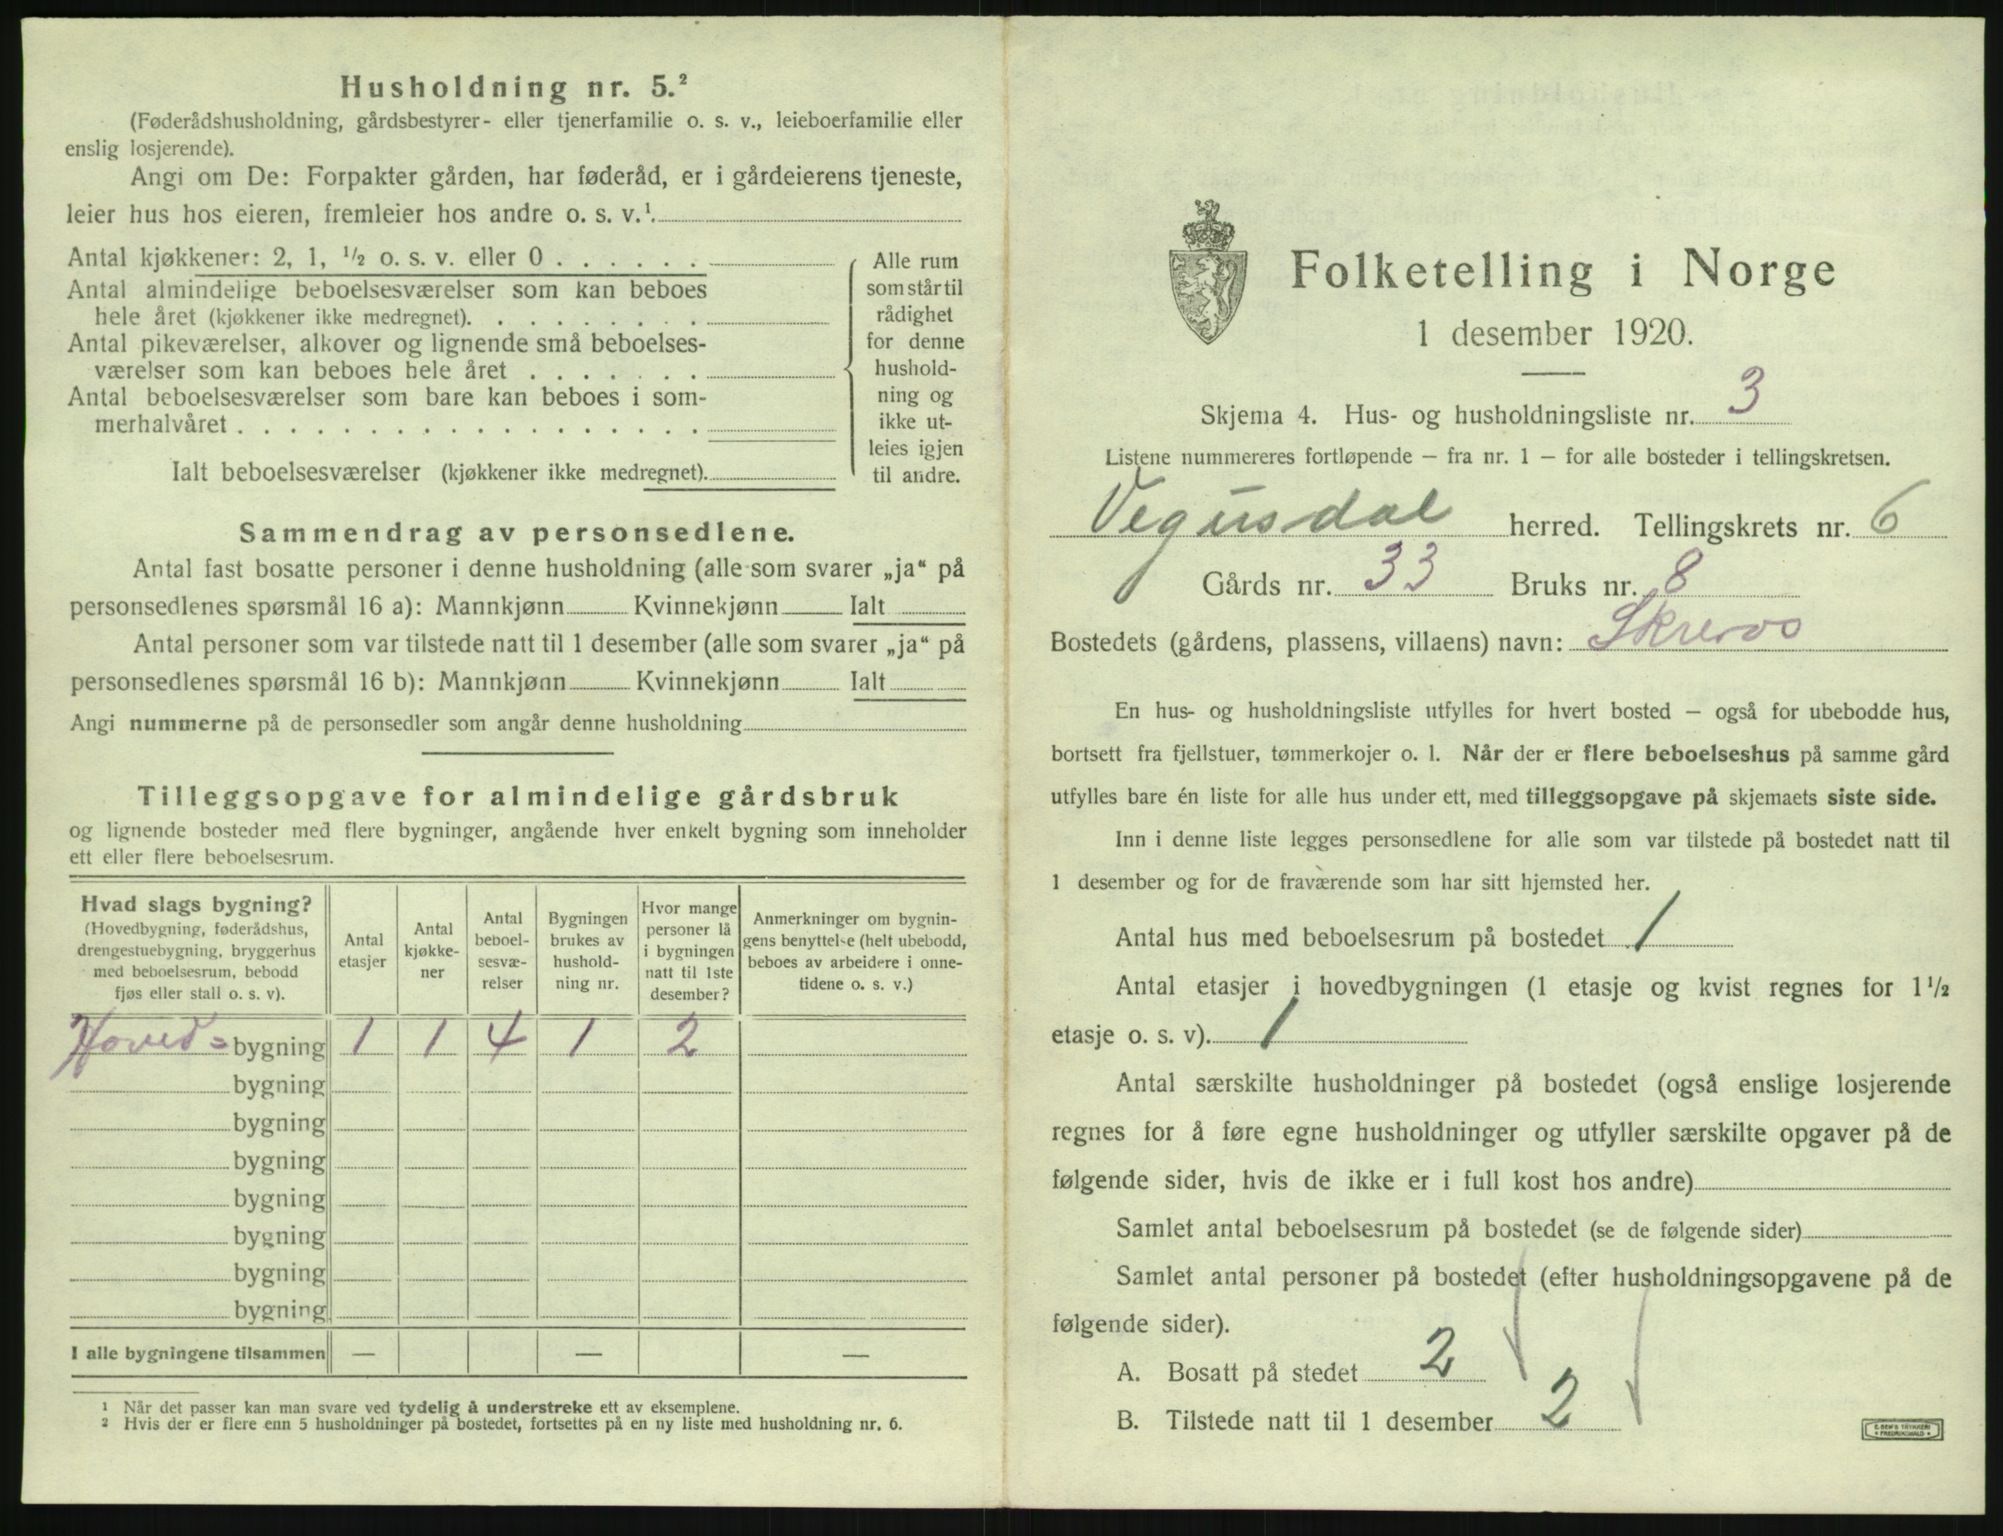 Husholdning nr. 5.²
(Føderådshusholdning, gårdsbestyrer- eller tjenerfamilie o. s. v., leieboerfamilie eller
enslig losjerende).
Angi om De: Forpakter gården, har føderåd, er i gårdeierens tjeneste,
leier hus hos eieren, fremleier hos andre o. s. v.¹
Antal kjøkkener: 2, 1, ½ o. s. v. eller 0 . . . . . .
Antal almindelige beboelsesværelser som kan beboes
hele året (kjøkkener ikke medregnet). . . . . . . . .
Antal pikeværelser, alkover og lignende små beboelses-
værelser som kan beboes hele året . . . . . . .
Antal beboelsesværelser som bare kan beboes i som-
merhalvåret . . . . . . . . . . . . . . . . . .
Ialt beboelsesværelser (kjøkkener ikke medregnet).
Alle rum
som står til
rådighet
for denne
hushold-
ning og
ikke ut-
leies igjen
til andre.
Sammendrag av personsedlene.
Antal fast bosatte personer i denne husholdning (alle som svarer „ja“ på
personsedlenes spørsmål 16 a): Mannkjønn Kvinnekjønn Ialt
Antal personer som var tilstede natt til 1 desember (alle som svarer „ja“ på
personsedlenes spørsmål 16 b): Mannkjønn Kvinnekjønn Ialt
Angi nummerne på de personsedler som angår denne husholdning
Tilleggsopgave for almindelige gårdsbruk
og lignende bosteder med flere bygninger, angående hver enkelt bygning som inneholder
ett eller flere beboelsesrum.
Hvad slags bygning?
(Hovedbygning, føderådshus,
drengestuebygning, bryggerhus
med beboelsesrum, bebodd
fjøs eller stall o. s. v).
Antal
etasjer
Antal
kjøkke-
ner
Antal
beboel-
sesvæ-
relser
Bygningen
brukes av
hushold-
ning nr.
Hvor mange
personer lå
i bygningen
natt til 1ste
desember?
Anmerkninger om bygnin-
gens benyttelse (helt ubebodd,
beboes av arbeidere i onne-
tidene o. s. v.)
Hoved= bygning 1 1 4 1 2
bygning
bygning
bygning
bygning
bygning
bygning
bygning
I alle bygningene tilsammen — — —
¹ Når det passer kan man svare ved tydelig å understreke ett av eksemplene.
² Hvis der er flere enn 5 husholdninger på bostedet, fortsettes på en ny liste med husholdning nr. 6.
Folketelling i Norge
1 desember 1920.
Skjema 4. Hus- og husholdningsliste nr. 3
Listene nummereres fortløpende — fra nr. 1 — for alle bosteder i tellingskretsen.
Vegusdal herred. Tellingskrets nr. 6
Gårds nr. 33 Bruks nr. 8
Bostedets (gårdens, plassens, villaens) navn:
En hus- og husholdningsliste utfylles for hvert bosted — også for ubebodde hus,
bortsett fra fjellstuer, tømmerkojer o. l. Når der er flere beboelseshus på samme gård
utfylles bare én liste for alle hus under ett, med tilleggsopgave på skjemaets siste side.
Inn i denne liste legges personsedlene for alle som var tilstede på bostedet natt til
1 desember og for de fraværende som har sitt hjemsted her.
Antal hus med beboelsesrum på bostedet 1
Antal etasjer i hovedbygningen (1 etasje og kvist regnes for 1½
etasje o. s. v). 1
Antal særskilte husholdninger på bostedet (også enslige losjerende
regnes for å føre egne husholdninger og utfyller særskilte opgaver på de
følgende sider, hvis de ikke er i full kost hos andre)
Samlet antal beboelsesrum på bostedet (se de følgende sider)
Samlet antal personer på bostedet (efter husholdningsopgavene på de
følgende sider).
A. Bosatt på stedet 2
B. Tilstede natt til 1 desember 2